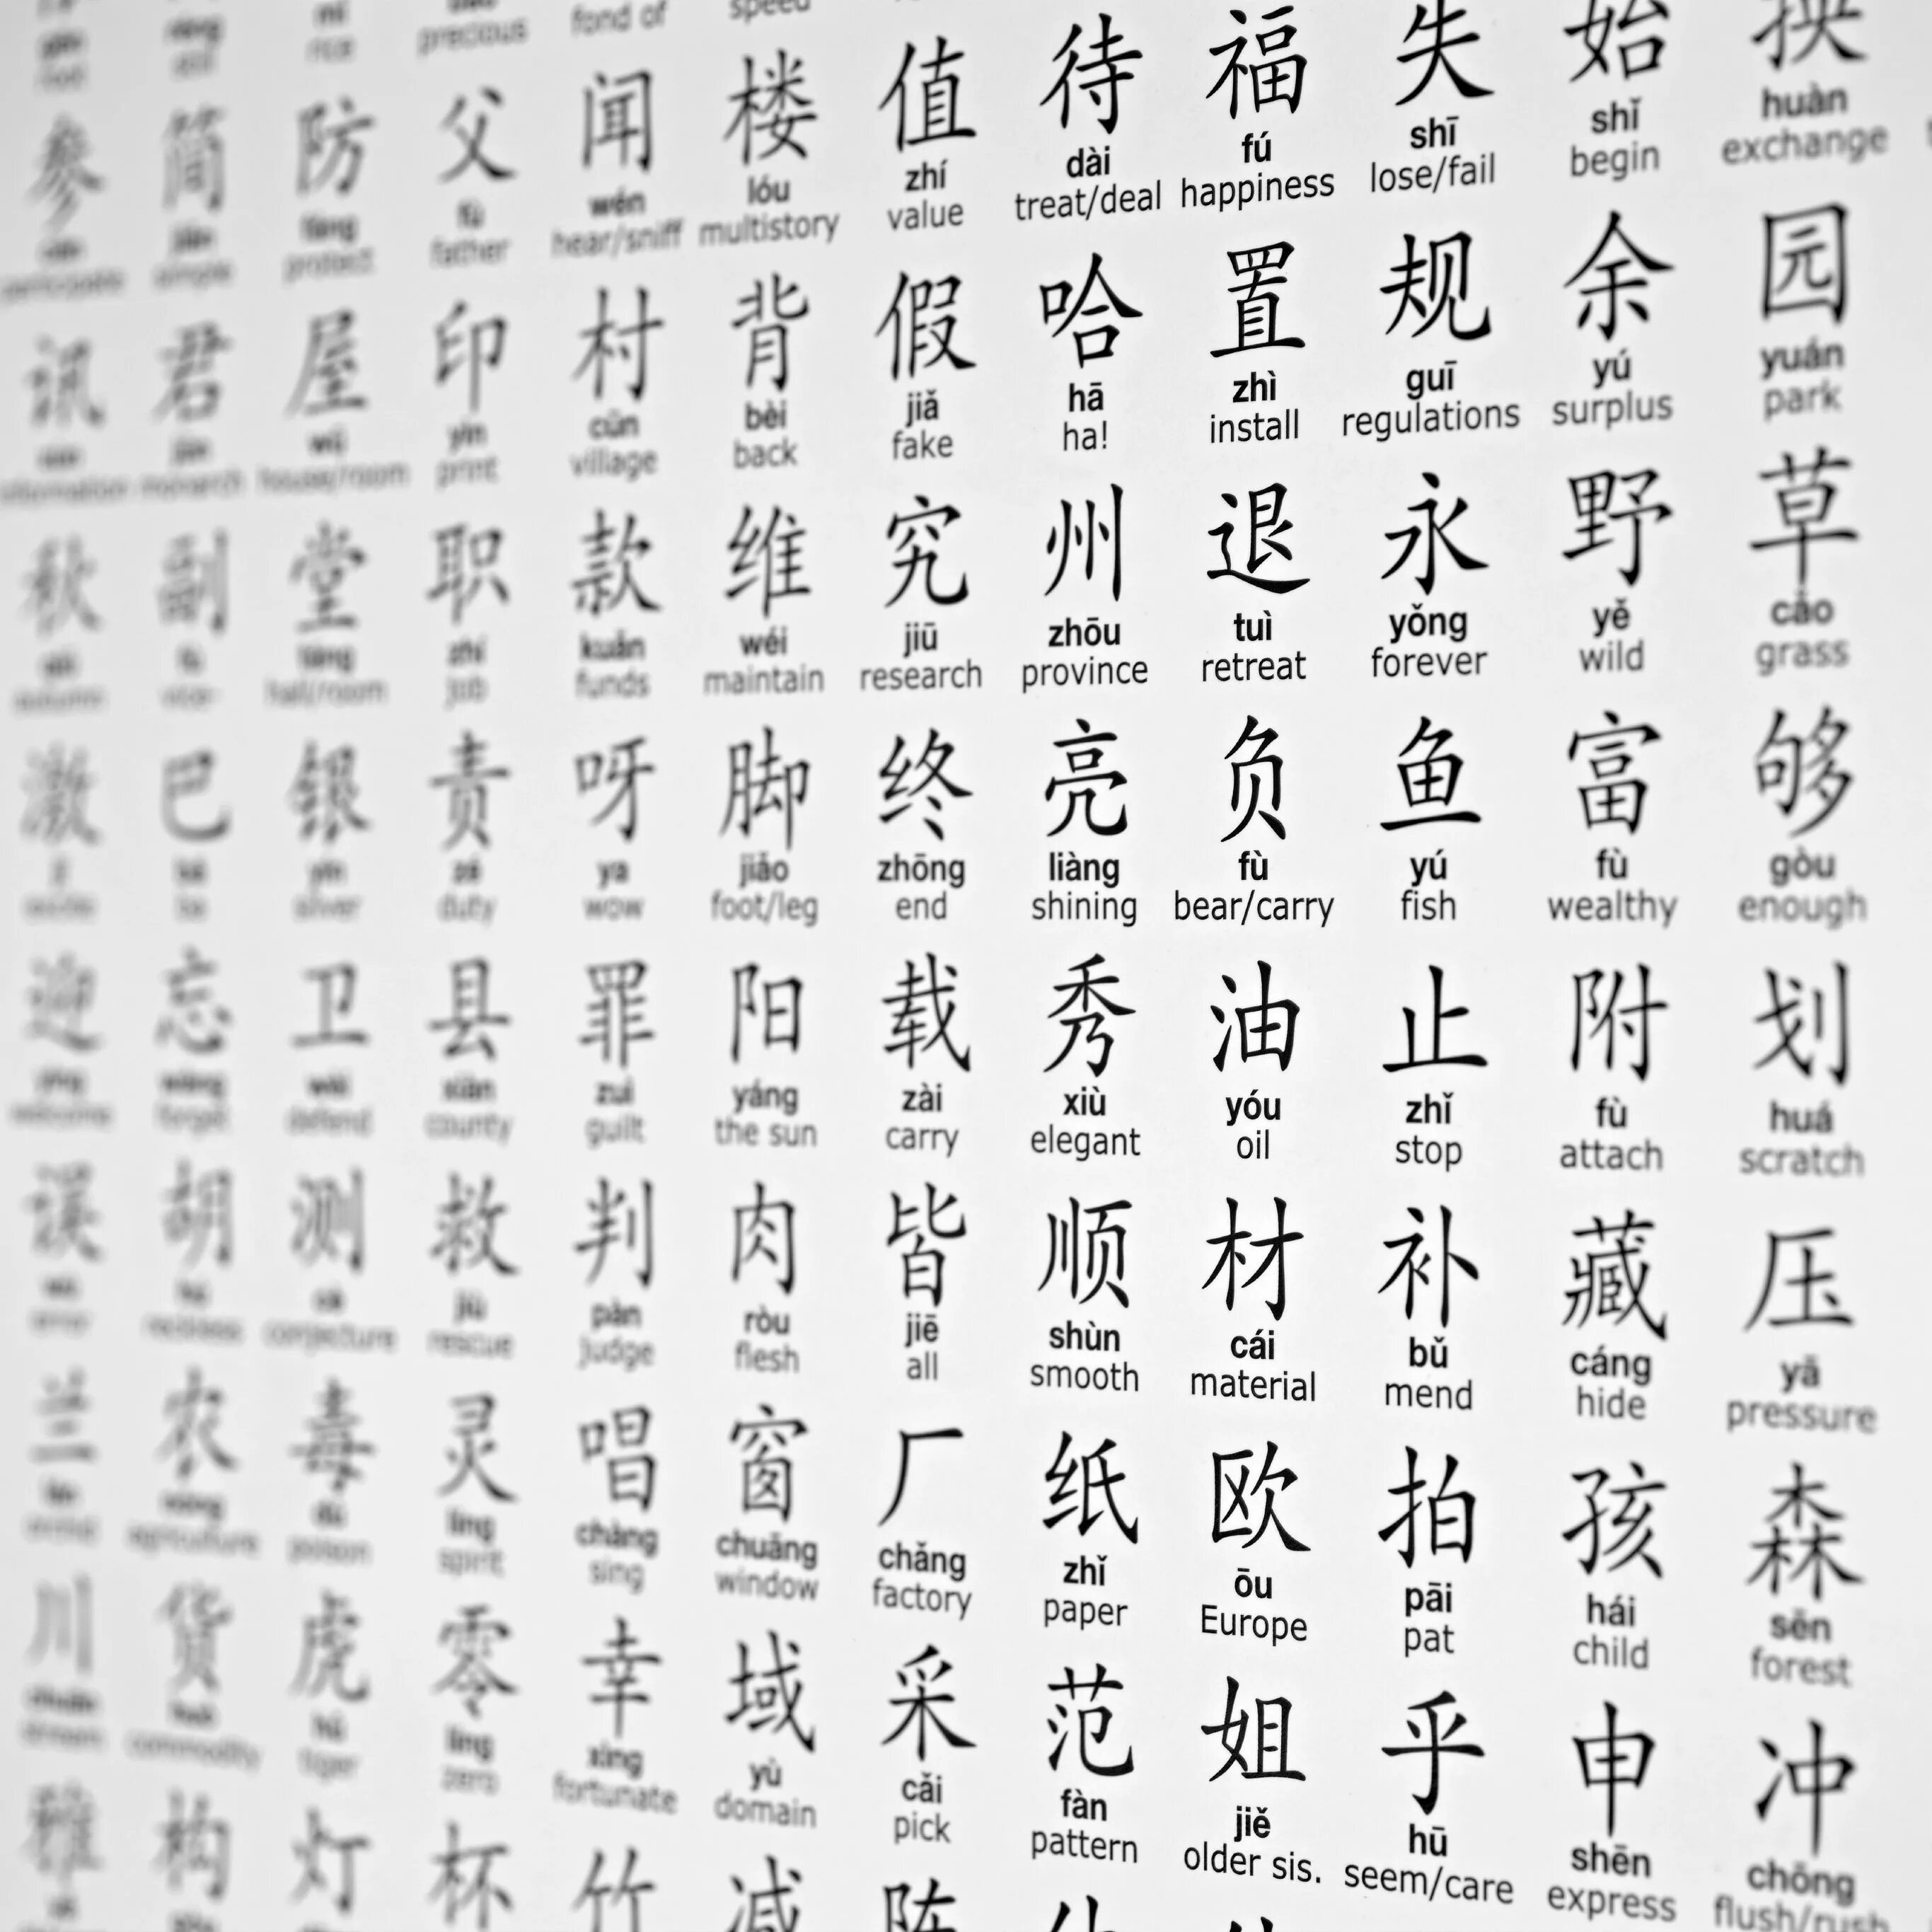 precious fond of speed
参 简 防 父 闻 楼 值 待 福 失 始 换
fáng fù wén lóu zhí dài fú shī shǐ huàn
participate simple protect father hear/sniff multistory value treat/deal happiness lose/fail begin exchange
讯 君 屋 印 村 背 假 哈 置 规 余 园
wū yìn cūn bèi jiǎ hā zhì guī yú yuán
information monarch house/room print village back fake ha! install regulations surplus park
秋 副 堂 职 款 维 究 州 退 永 野 草
táng zhí kuǎn wéi jiū zhōu tuì yǒng yě cǎo
autumn vice- hall/room job funds maintain research province retreat forever wild grass
激 巴 银 责 呀 脚 终 亮 负 鱼 富 够
yín zé ya jiǎo zhōng liàng fù yú fù gòu
silver duty wow foot/leg end shining bear/carry fish wealthy enough
迎 忘 卫 县 罪 阳 载 秀 油 止 附 划
yíng wàng wèi xiàn zuì yáng zài xiù yóu zhǐ fù huá
welcome forget defend county guilt the sun carry elegant oil stop attach scratch
误 胡 测 救 判 肉 皆 顺 材 补 藏 压
jiù pàn ròu jiē shùn cái bǔ cáng yā
error reckless conjecture rescue judge flesh all smooth material mend hide pressure
兰 农 毒 灵 唱 窗 厂 纸 欧 拍 孩 森
nóng dú líng chàng chuāng chǎng zhǐ ōu pāi hái sēn
orchid agriculture poison spirit sing window factory paper Europe pat child forest
川 货 虎 零 幸 域 采 范 姐 乎 申 冲
chuān huò hǔ líng xìng yù cǎi fàn jiě hū shēn chōng
stream commodity tiger zero fortunate domain pick pattern older sis. seem/care express flush/rush
雅 构 灯 杯 竹 减 陈